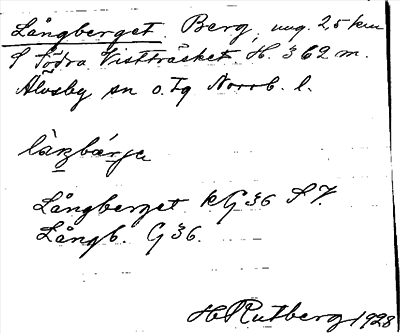 Långberget Berg, ung. 25 km
S Södra Vistträsket H. 362 m.
Älvsby sn o. Tg Norrb. l.
låŋbárja
Långberget kG36 S7.
Långb. G36.
H Rutberg 1928